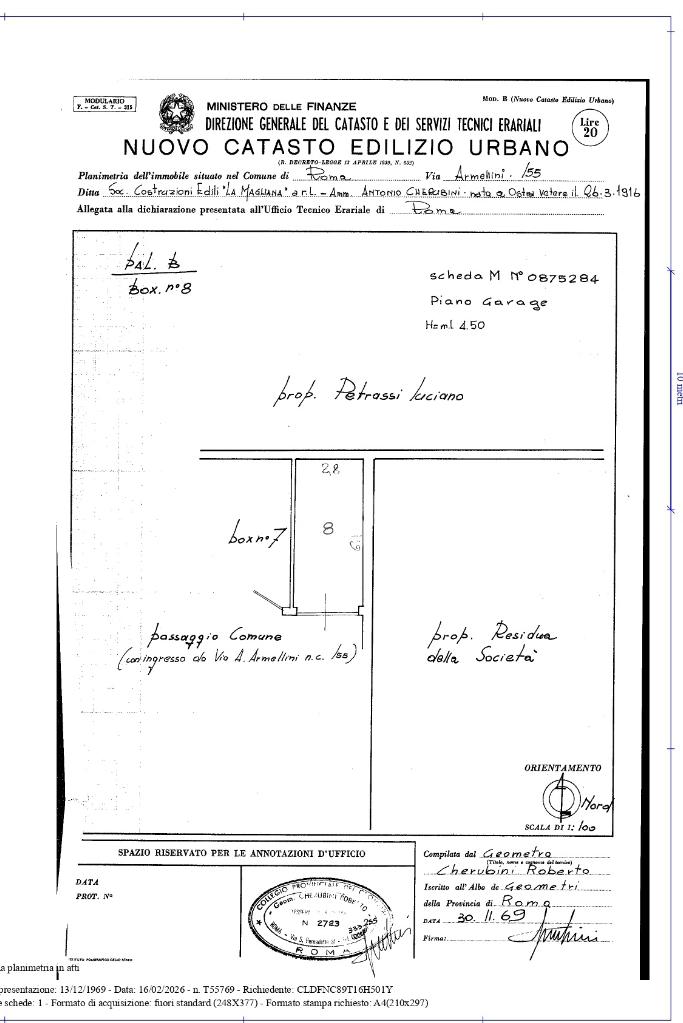 MODULARIO
F. - Cat. S. T. - 315
MINISTERO DELLE FINANZE
DIREZIONE GENERALE DEL CATASTO E DEI SERVIZI TECNICI ERARIALI
NUOVO CATASTO EDILIZIO URBANO
(R. DECRETO-LEGGE 13 APRILE 1939, N. 652)
MOD. B (Nuovo Catasto Edilizio Urbano)
Lire
20
Planimetria dell'immobile situato nel Comune di Roma Via Armellini · 155
Ditta Soc. Costruzioni Edili "LA MAGLIANA" a r.l. - Amm. ANTONIO CHERUBINI · nato a Ostra Vetere il 26·3·1916
Allegata alla dichiarazione presentata all'Ufficio Tecnico Erariale di Roma
PAL. B
Box. n° 8
scheda M N° 0875284
Piano Garage
H= ml. 4.50
prop. Petrassi Luciano
2,8
8
box n° 7
passaggio Comune
(con ingresso da Via A. Armellini n.c. 155)
prop. Residua
della Società
10 metri
ORIENTAMENTO
Nord
SCALA DI 1: 100
SPAZIO RISERVATO PER LE ANNOTAZIONI D'UFFICIO
DATA
PROT. N°
COLLEGIO PROVINCIALE DEI
Geom. CHERUBINI ROBERTO
N 2783
ROMA
Compilata dal Geometra
(Titolo, nome e cognome del tecnico)
Cherubini Roberto
Iscritto all'Albo de Geometri
della Provincia di Roma
DATA 30.11.69
Firma:
ISTITUTO POLIGRAFICO DELLO STATO
la planimetria in atti
presentazione: 13/12/1969 - Data: 16/02/2026 - n. T55769 - Richiedente: CLDFNC89T16H501Y
e schede: 1 - Formato di acquisizione: fuori standard (248X377) - Formato stampa richiesto: A4(210x297)